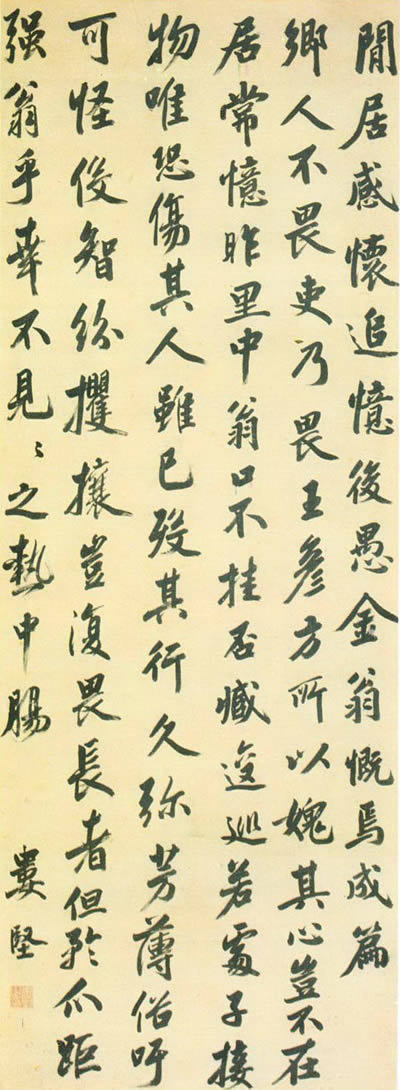 閒居感懷追憶後愚金翁慨焉成篇
鄉人不畏吏乃畏王彥方所以媿其心豈不在
居常憶昨里中翁口不挂否臧逡巡若處子接
物唯恐傷其人雖已歿其行久弥芳薄俗吁
可怪俊智紛攫攘豈復畏長者但矜爪距
强翁乎幸不見〻之熱中腸
婁堅